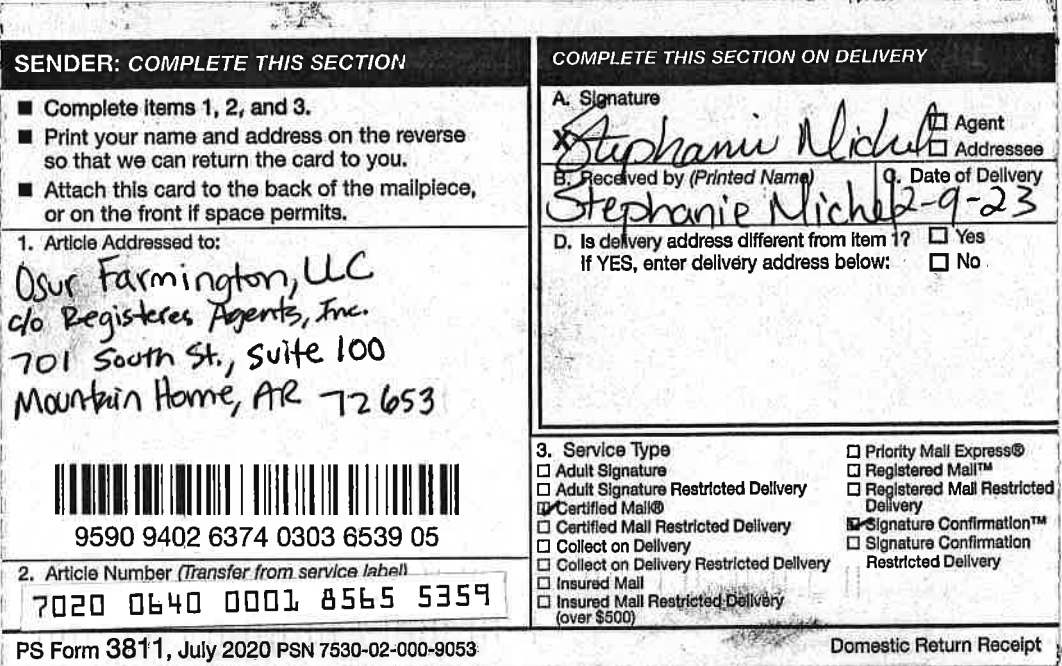 SENDER: COMPLETE THIS SECTION
■ Complete items 1, 2, and 3.
■ Print your name and address on the reverse
so that we can return the card to you.
■ Attach this card to the back of the mailpiece,
or on the front if space permits.
1. Article Addressed to:
Osur Farmington, LLC
c/o Registeres Agents, Inc.
701 South St., Suite 100
Mountain Home, AR 72653
9590 9402 6374 0303 6539 05
2. Article Number (Transfer from service label)
7020 0640 0001 8565 5359
COMPLETE THIS SECTION ON DELIVERY
A. Signature
X Stephanie Michel
☐ Agent
☐ Addressee
B. Received by (Printed Name)
C. Date of Delivery
Stephanie Michel 2-9-23
D. Is delivery address different from item 1? ☐ Yes
If YES, enter delivery address below: ☐ No
3. Service Type
☐ Adult Signature
☐ Adult Signature Restricted Delivery
☑ Certified Mail®
☐ Certified Mail Restricted Delivery
☐ Collect on Delivery
☐ Collect on Delivery Restricted Delivery
☐ Insured Mail
☐ Insured Mail Restricted Delivery
(over $500)
☐ Priority Mail Express®
☐ Registered Mail™
☐ Registered Mail Restricted
Delivery
☑ Signature Confirmation™
☐ Signature Confirmation
Restricted Delivery
PS Form 3811, July 2020 PSN 7530-02-000-9053
Domestic Return Receipt